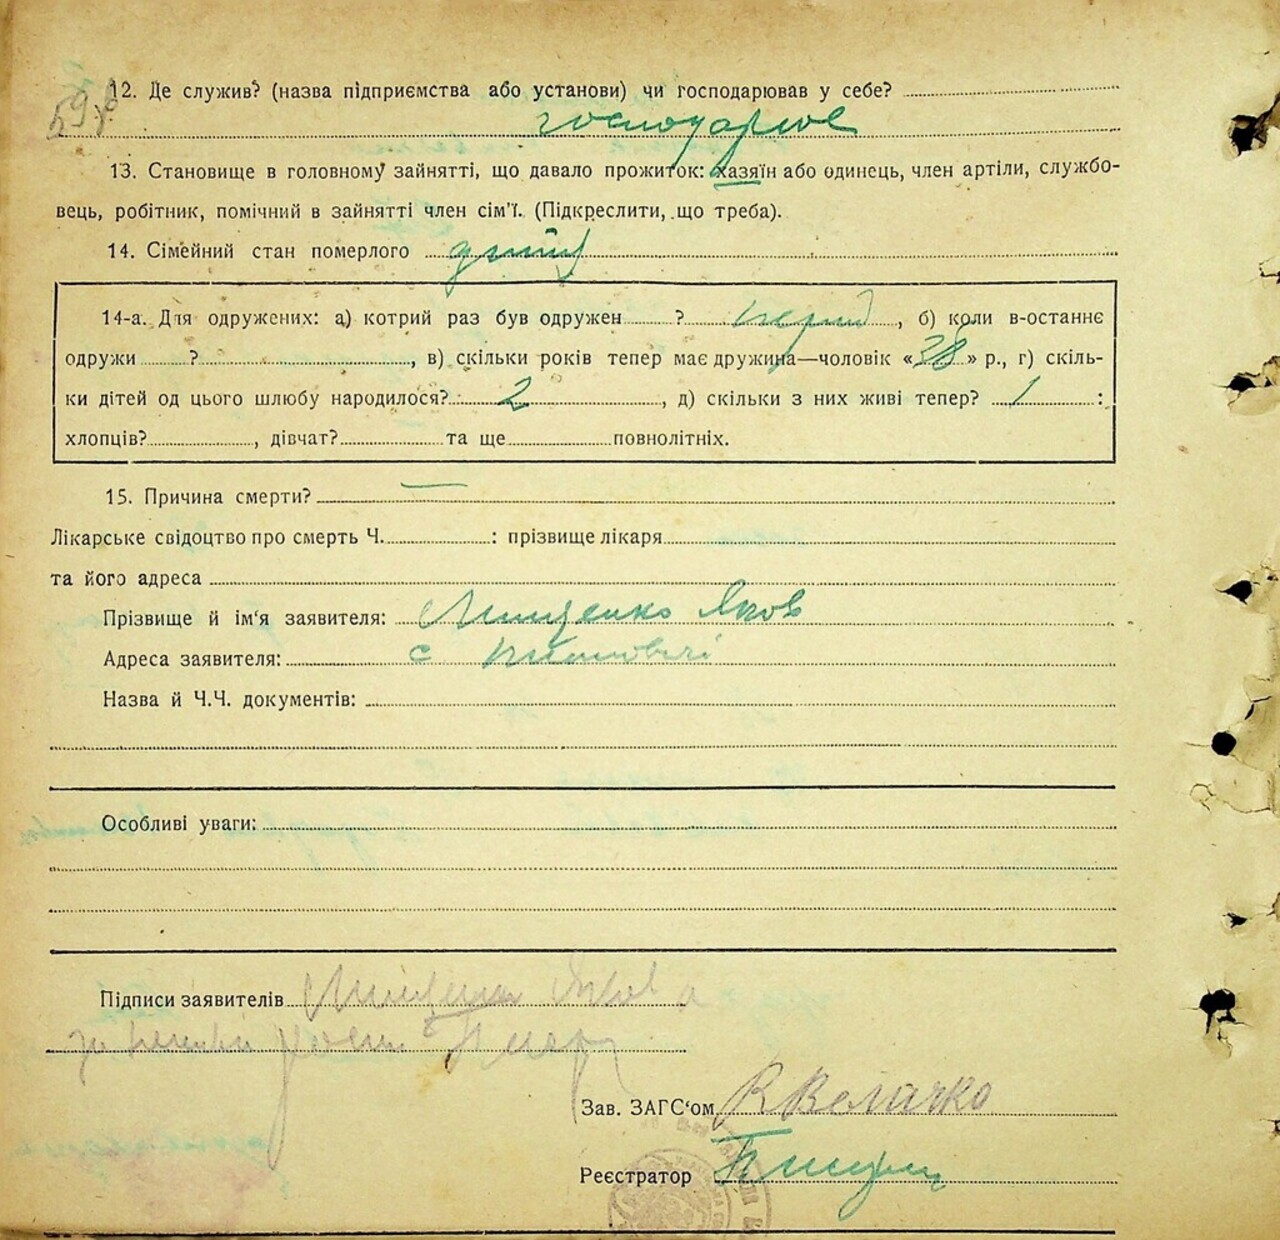 12. Де служив? (назва підприємства або установи) чи господарював у себе?
59
господарює
13. Становище в головному зайнятті, що давало прожиток: хазяїн або одинець, член артіли, службо-
вець, робітник, помічний в зайнятті член сім'ї. (Підкреслити, що треба).
14. Сімейний стан померлого
14-а. Для одружених: а) котрий раз був одружен ? перш , б) коли в-останнє
одружи ? , в) скільки років тепер має дружина—чоловік «38» р., г) скіль-
ки дітей од цього шлюбу народилося? 2 , д) скільки з них живі тепер? 1 :
хлопців? , дівчат? та ще повнолітніх.
15. Причина смерти? —
Лікарське свідоцтво про смерть Ч. : прізвище лікаря
та його адреса
Прізвище й ім'я заявителя: Мищенко Яков
Адреса заявителя: с
Назва й Ч.Ч. документів:
Особливі уваги:
Підписи заявителів Мищенко Яков
Зав. ЗАГС'ом Величко
Реєстратор